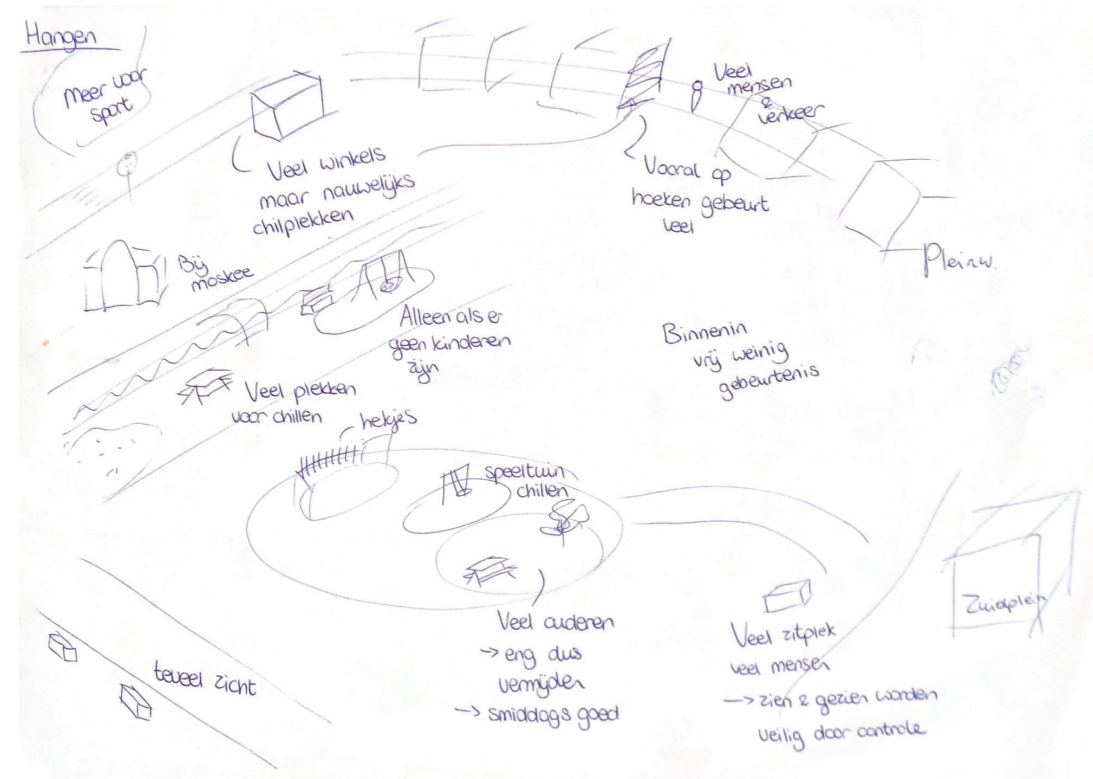 Hangen
Meer voor
sport
Veel winkels
maar nauwelijks
chilplekken
Veel
mensen
&
verkeer
Vooral op
hoeken gebeurt
veel
Pleinw.
Bij
moskee
Alleen als er
geen kinderen
zijn
Binnenin
vrij weinig
gebeurtenis
Veel plekken
voor chillen
hekjes
speeltuin
chillen
Zuidplein
Veel ouderen
→ eng dus
vermijden
→ smiddags goed
Veel zitplek
veel mensen
→ zien & gezien worden
veilig door controle
teveel zicht